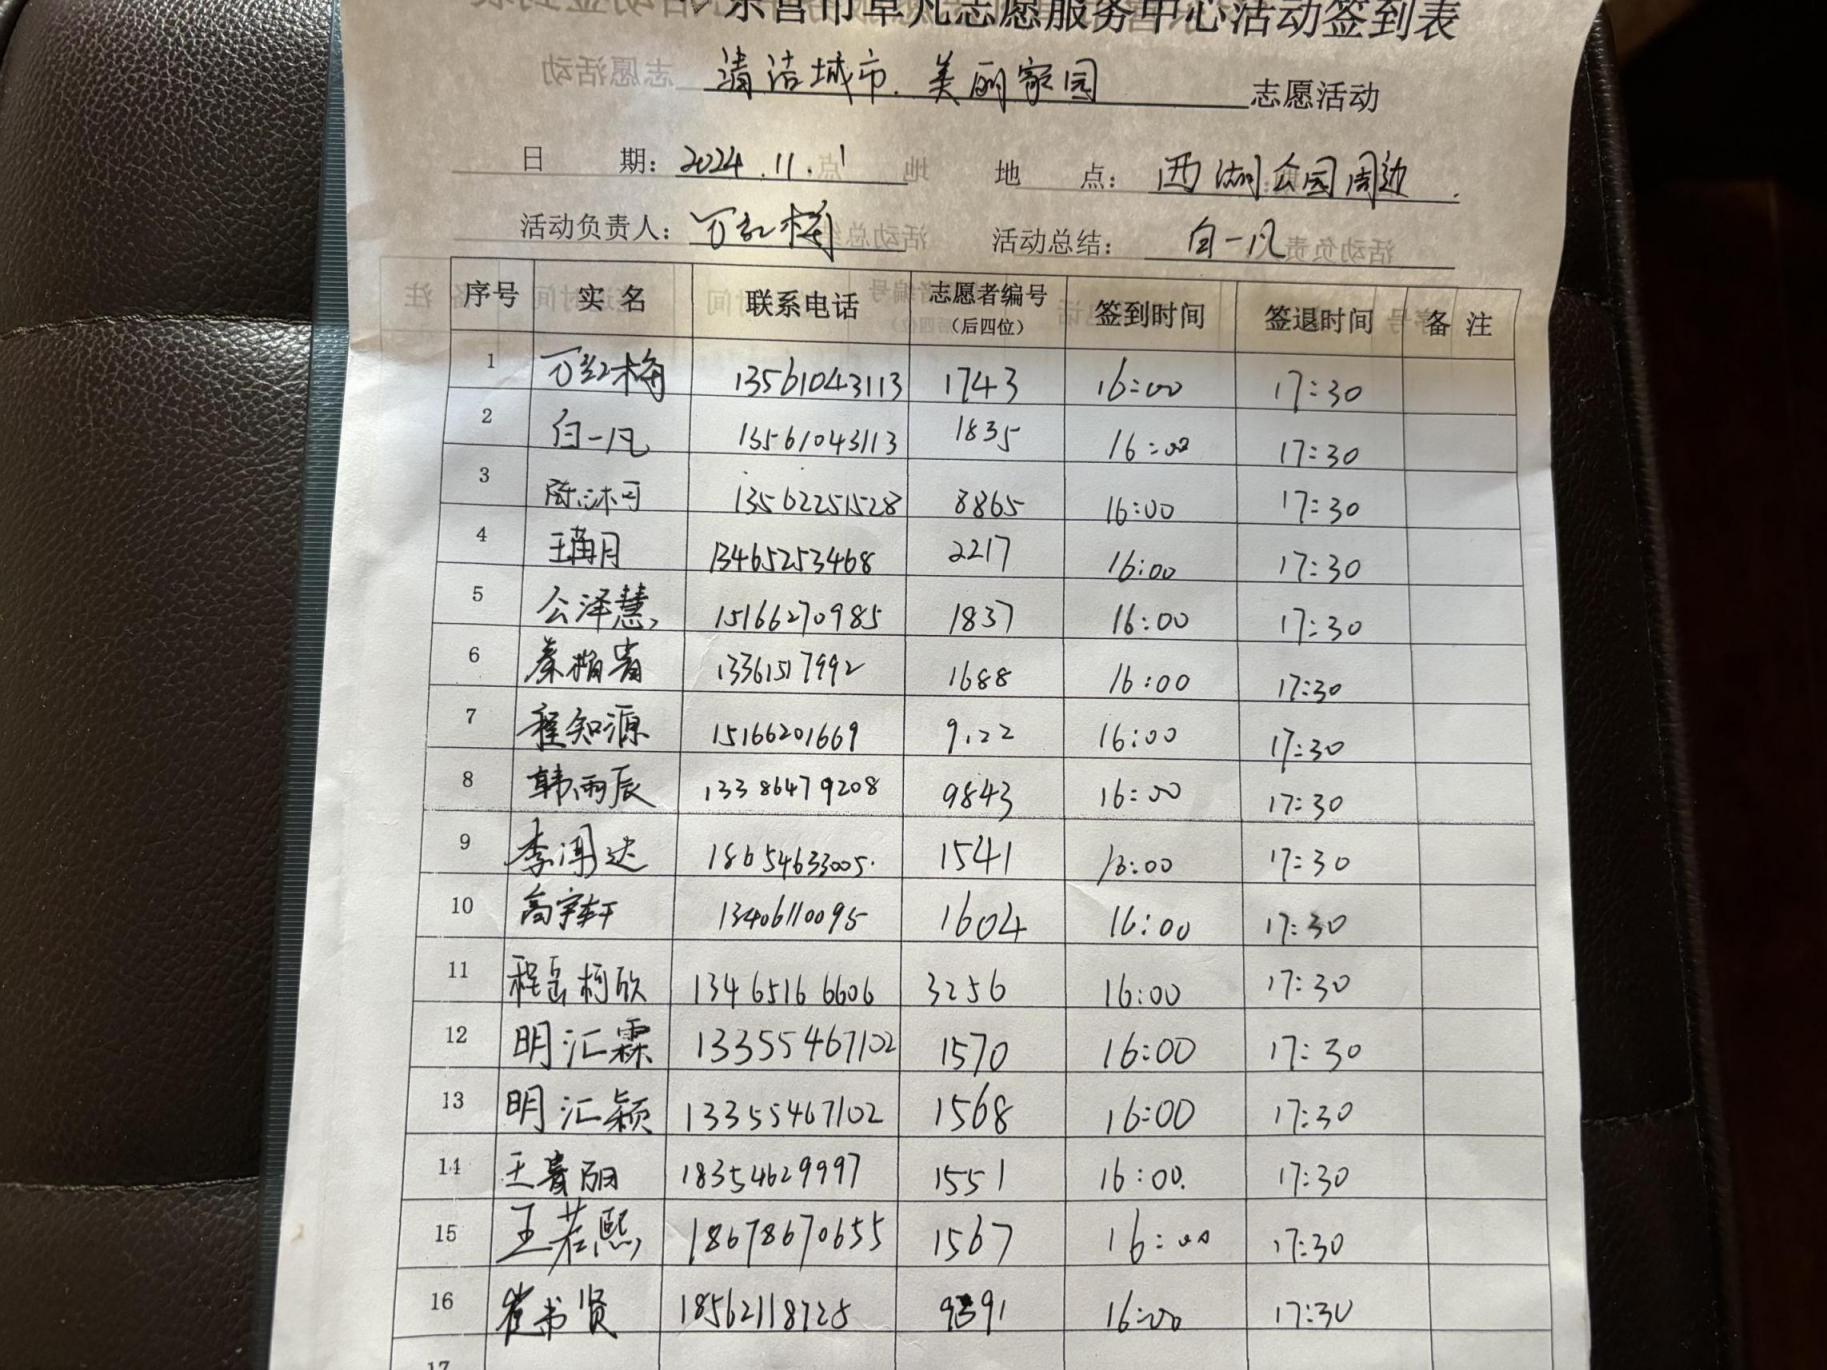 东营市草凡志愿服务中心活动签到表
清洁城市.美丽家园 志愿活动
日 期: 2024.11.1 地 点: 西湖公园周边
活动负责人: 万红梅 活动总结: 白一凡
序号 实 名 联系电话 志愿者编号(后四位) 签到时间 签退时间 备 注
1 万红梅 13561043113 1743 16:00 17:30
2 白一凡 13561043113 1835 16:00 17:30
3 陈沐可 13562251528 8865 16:00 17:30
4 王苒月 13465253468 2217 16:00 17:30
5 公泽慧 15166270985 1837 16:00 17:30
6 秦楷睿 13361517992 1688 16:00 17:30
7 程知源 15166201669 9122 16:00 17:30
8 韩雨辰 13386479208 9843 16:00 17:30
9 李闰达 18654633005 1541 16:00 17:30
10 高宇轩 13406110095 1604 16:00 17:30
11 程岳柯欣 13465166606 3256 16:00 17:30
12 明汇霖 13355467102 1570 16:00 17:30
13 明汇颖 13355467102 1568 16:00 17:30
14 王喜丽 18354629997 1551 16:00. 17:30
15 王若熙 18678670655 1567 16:00 17:30
16 崔书贤 18562118728 9391 16:00 17:30
17